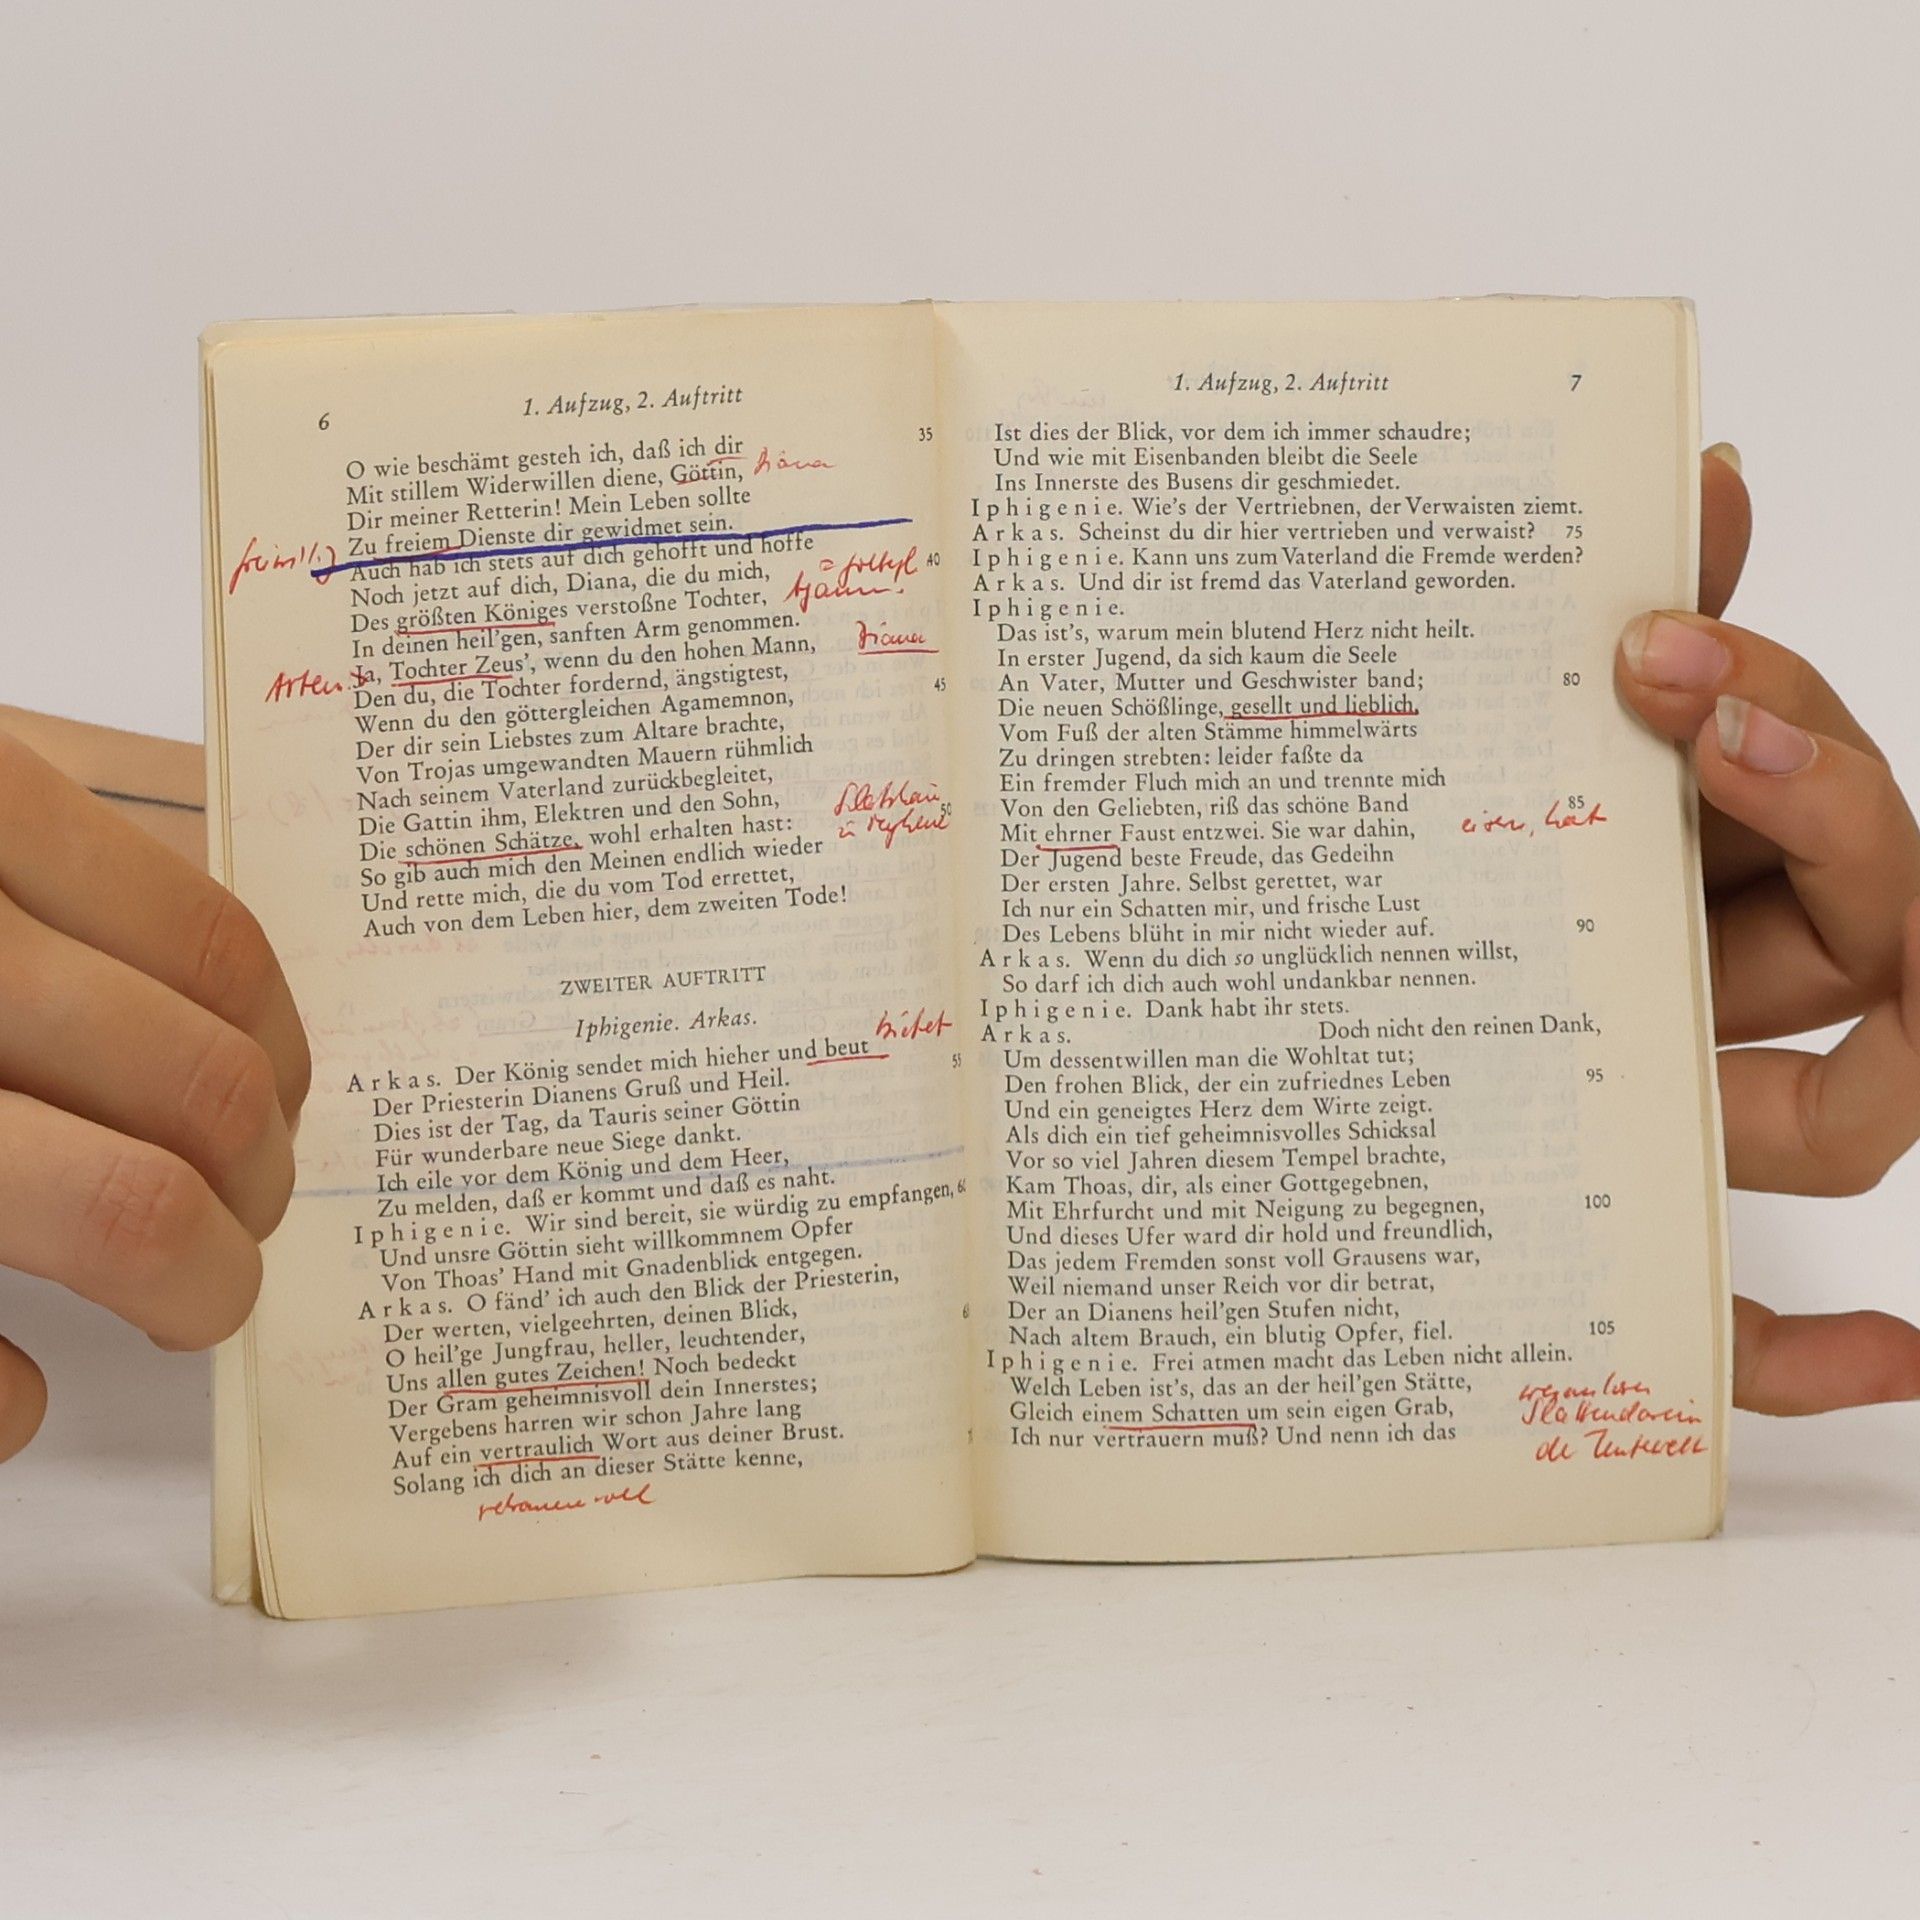 6
1. Aufzug, 2. Auftritt
O wie beschämt gesteh ich, daß ich dir 35
Mit stillem Widerwillen diene, Göttin, Diana
Dir meiner Retterin! Mein Leben sollte
Zu freiem Dienste dir gewidmet sein.
freiwillig
Auch hab ich stets auf dich gehofft und hoffe
Noch jetzt auf dich, Diana, die du mich, 40
Des größten Königes verstoßne Tochter,
In deinen heil'gen, sanften Arm genommen.
Ja, Tochter Zeus', wenn du den hohen Mann, Diana
Den du, die Tochter fordernd, ängstigtest,
Wenn du den göttergleichen Agamemnon, 45
Der dir sein Liebstes zum Altare brachte,
Von Trojas umgewandten Mauern rühmlich
Nach seinem Vaterland zurückbegleitet,
Die Gattin ihm, Elektren und den Sohn,
Die schönen Schätze, wohl erhalten hast: 50
So gib auch mich den Meinen endlich wieder
Und rette mich, die du vom Tod errettet,
Auch von dem Leben hier, dem zweiten Tode!
ZWEITER AUFTRITT
Iphigenie. Arkas.
bietet
Arkas. Der König sendet mich hieher und beut
Der Priesterin Dianens Gruß und Heil. 55
Dies ist der Tag, da Tauris seiner Göttin
Für wunderbare neue Siege dankt.
Ich eile vor dem König und dem Heer,
Zu melden, daß er kommt und daß es naht.
Iphigenie. Wir sind bereit, sie würdig zu empfangen,
Und unsre Göttin sieht willkommnem Opfer
Von Thoas' Hand mit Gnadenblick entgegen.
Arkas. O fänd' ich auch den Blick der Priesterin,
Der werten, vielgeehrten, deinen Blick,
O heil'ge Jungfrau, heller, leuchtender,
Uns allen gutes Zeichen! Noch bedeckt
Der Gram geheimnisvoll dein Innerstes;
Vergebens harren wir schon Jahre lang
Auf ein vertraulich Wort aus deiner Brust.
Solang ich dich an dieser Stätte kenne,
1. Aufzug, 2. Auftritt
7
Ist dies der Blick, vor dem ich immer schaudre;
Und wie mit Eisenbanden bleibt die Seele
Ins Innerste des Busens dir geschmiedet.
Iphigenie. Wie's der Vertriebnen, der Verwaisten ziemt.
Arkas. Scheinst du dir hier vertrieben und verwaist? 75
Iphigenie. Kann uns zum Vaterland die Fremde werden?
Arkas. Und dir ist fremd das Vaterland geworden.
Iphigenie.
Das ist's, warum mein blutend Herz nicht heilt.
In erster Jugend, da sich kaum die Seele
An Vater, Mutter und Geschwister band; 80
Die neuen Schößlinge, gesellt und lieblich,
Vom Fuß der alten Stämme himmelwärts
Zu dringen strebten: leider faßte da
Ein fremder Fluch mich an und trennte mich
Von den Geliebten, riß das schöne Band 85
Mit ehrner Faust entzwei. Sie war dahin,
Der Jugend beste Freude, das Gedeihn
Der ersten Jahre. Selbst gerettet, war
Ich nur ein Schatten mir, und frische Lust
Des Lebens blüht in mir nicht wieder auf. 90
Arkas. Wenn du dich so unglücklich nennen willst,
So darf ich dich auch wohl undankbar nennen.
Iphigenie. Dank habt ihr stets.
Arkas. Doch nicht den reinen Dank,
Um dessentwillen man die Wohltat tut;
Den frohen Blick, der ein zufriednes Leben 95
Und ein geneigtes Herz dem Wirte zeigt.
Als dich ein tief geheimnisvolles Schicksal
Vor so viel Jahren diesem Tempel brachte,
Kam Thoas, dir, als einer Gottgegebnen,
Mit Ehrfurcht und mit Neigung zu begegnen, 100
Und dieses Ufer ward dir hold und freundlich,
Das jedem Fremden sonst voll Grausens war,
Weil niemand unser Reich vor dir betrat,
Der an Dianens heil'gen Stufen nicht,
Nach altem Brauch, ein blutig Opfer, fiel. 105
Iphigenie. Frei atmen macht das Leben nicht allein.
Welch Leben ist's, das an der heil'gen Stätte,
Gleich einem Schatten um sein eigen Grab,
Ich nur vertrauern muß? Und nenn ich das